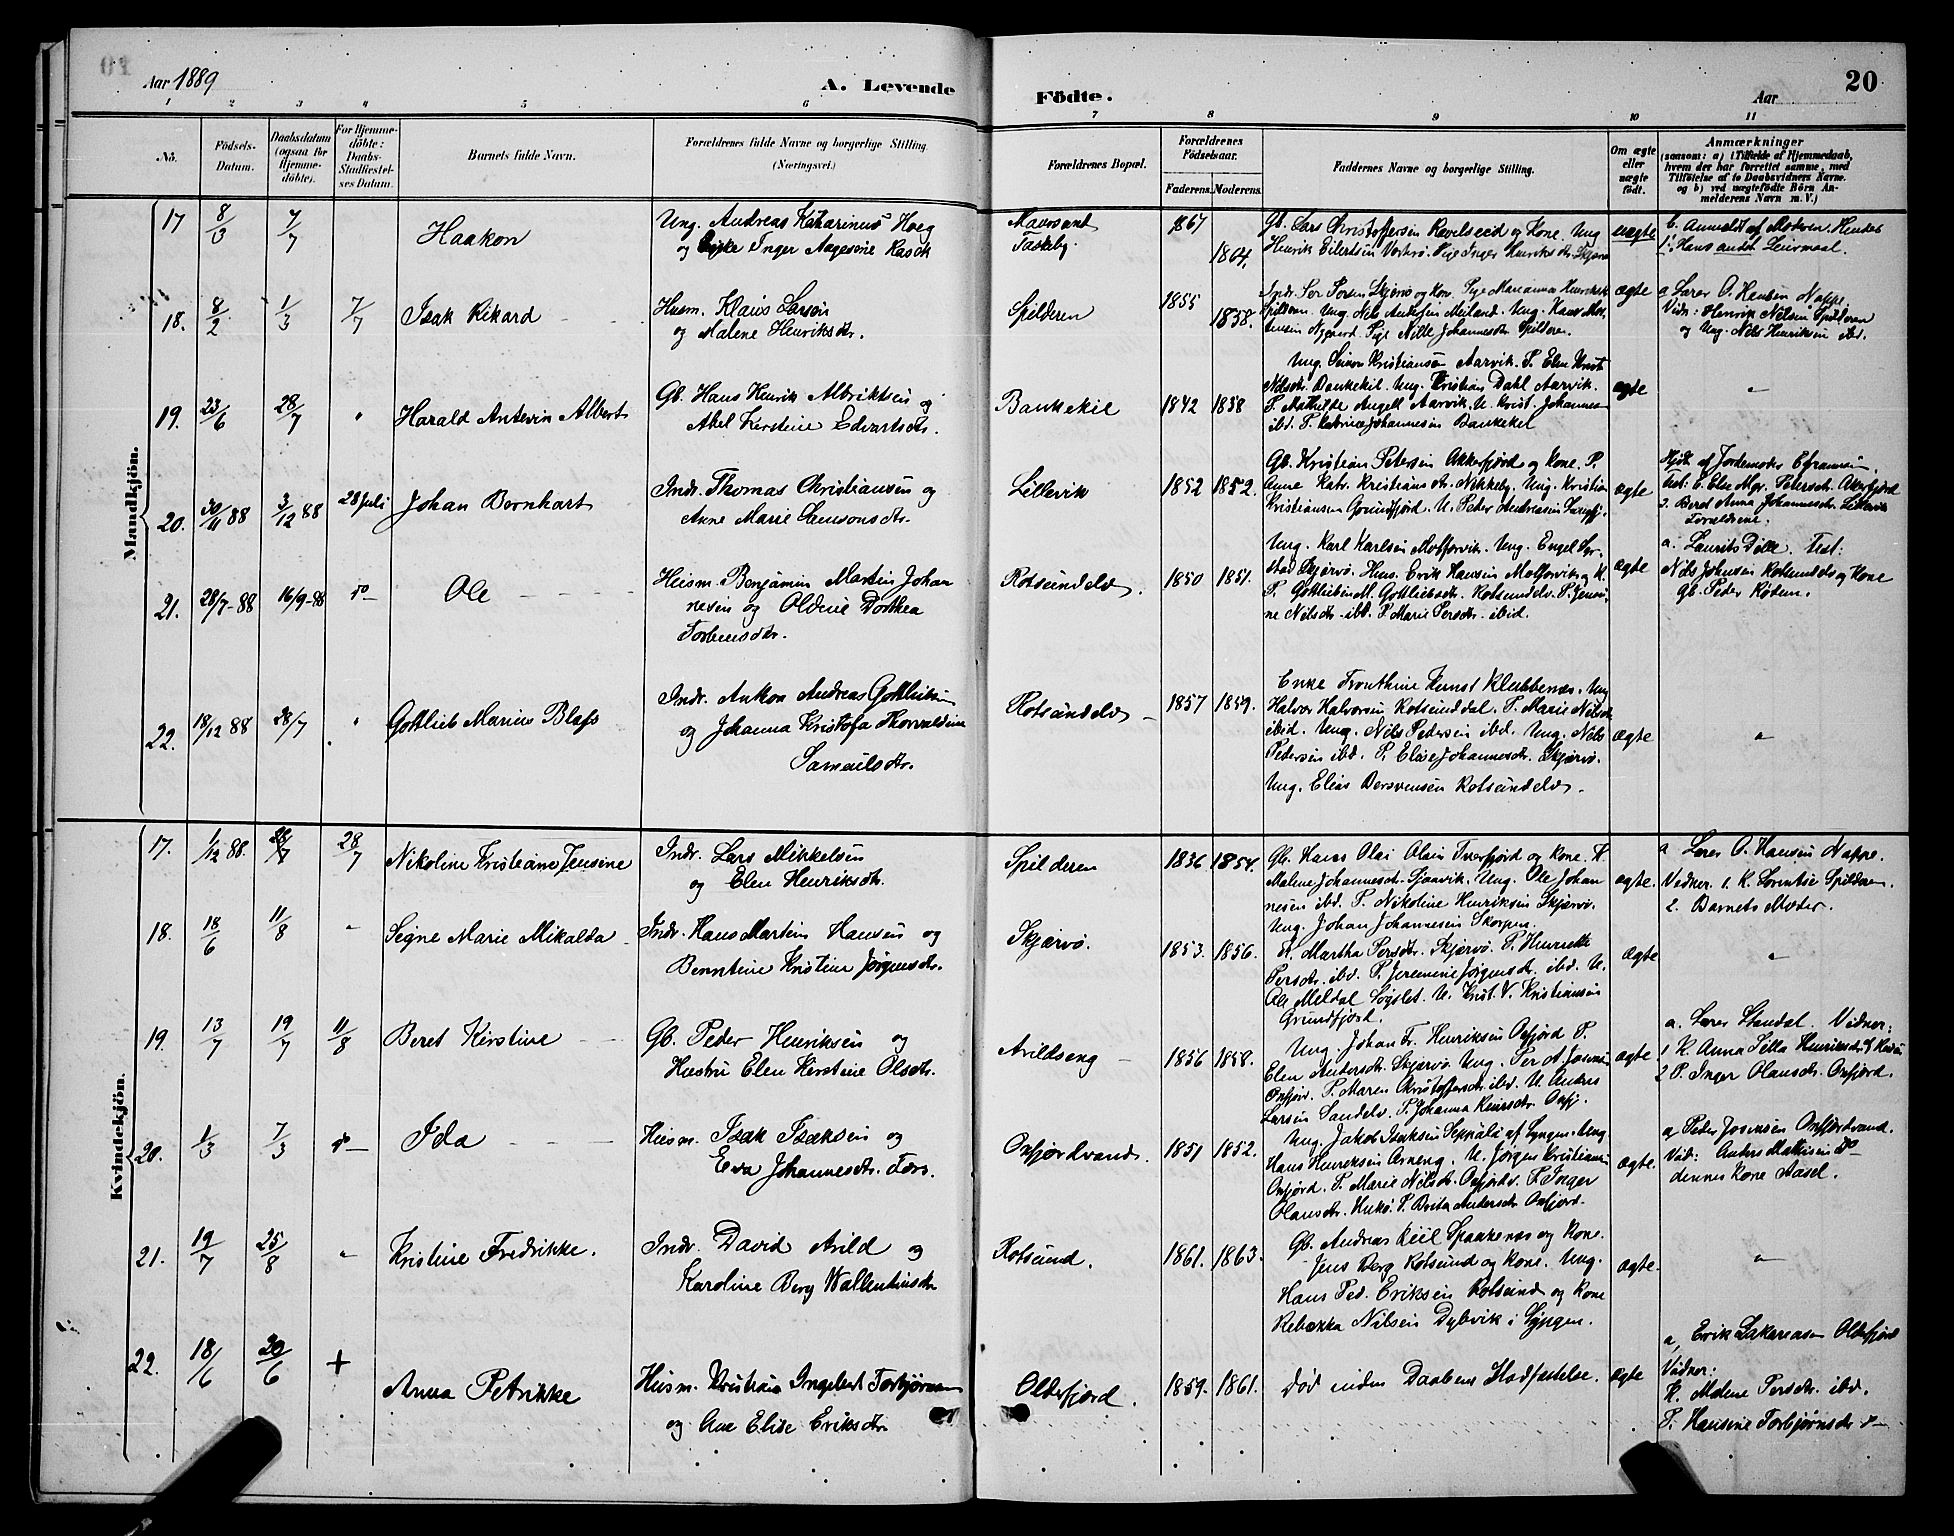 Aar 1889
A. Levende
Födte.
Aar
20
1 2 3 4 5 6 7 8 9 10 11
No.
Födsels-
Datum.
Daabsdatum
(ogsaa for
Hjemme-
döbte).
For Hjemme-
döbte:
Daabs-
Stadfæstel-
ses Datum.
Barnets fulde Navn.
Forældrenes fulde Navne og borgerlige Stilling
(Næringsvei.)
Forældrenes Bopæl.
Forældrenes
Födselsaar.
Faderens. Moderens.
Faddernes Navne og borgerlige Stilling.
Om ægte
eller
uægte
födt.
Anmærkninger
(saasom: a) i Tilfælde af Hjemmedaab,
hvem der har forrettet samme, med
Tilföielse af to Daabsvidners Navne,
og b) ved uægtefödte Börn An-
melderens Navn m. V.)
Mandkjön.
17 8/3 7/7
Haakon
Ung. Andreas Katharinus Hoeg
og Inger Aagesine Rasch
Maursund
1867
1864.
Gb. Lars Christoffersen Ravelseid og Kone. Ung
Henrik Eilertsen Vorterö. Pige Inger Henriksdtr. Skjærvö
uægte
b. Anmeldt af Moderen. Hendes
1. Hans andet Leiermaal.
18. 8/2 1/3 7/7
Isak Rikard
Husm. Klaus Larsen
og Malene Henriksdtr.
Spilderen
1855
1858.
Spilderen. Ung. Nils Antonsen Meiland. Ung. Hans Mor-
tensen Nygaard. Pige Nille Johannesdtr. Spilderen.
ægte
a Lærer O. Hansen Nappe.
Vidn: Henrik Nilsen Spilderen
og Ung. Nils Henriksen ibd.
19. 23/6 28/7 "
Harald Antevin Albert
Gb. Hans Henrik Albriktsen og
Abel Kerstine Edvartsdtr.
Baukekil
1842 1858
Ung. Simon Kristiansen Aarvik. P. Elen Krist
Nilsdtr. Baukekil. Ung. Kristian Dahl Aarvik.
P. Mathilde Angell Aarvik. U. Krist. Johannes
ibd. P. Katrine Johannesen Baukekil
ægte
"
20. 30/11 88 3/12 88 28 Juli
Johan Bernhart
Indr. Thomas Christiansen og
Anne Marie Samsonsdtr.
Lillevik
1852 1852.
Gb. Kristian Petersen Akkerfjord og Kone. P.
Anne Katr. Kristiansdtr. Nikkeby. Ung. Kristian
Kristiansen Grundfjord. U. Peder Andreasen Langfj.
ægte
Hjdt. af Jordemoder Efraimsen.
Test: 1. Elen Mgr. Petersdtr. Akkerfjord
2. Beret Anna Johannesdtr. Lillevik
Forældrene.
21. 28/7-88 16/9-88 do
Ole
Husm. Benjamin Martin Johan
nesen og Oldine Dorthea
Torbensdtr.
Rotsundelv.
1850 1851.
Ung. Karl Karlsen Molforvik. Ung. Engel Lyr-
stad Skjærvö. Hus. Erik Hansen Molforvik og K.
P. Gottlieben M. Gottliebsdtr. Rotsundelv. P. Jensi-
ne Nilsdtr. ibd. P. Marie Persdtr. ibid.
ægte
a. Laurits Dille. Test:
Nils Johnsen Rotsundelv og Kone
Gb. Peder Rödum.
22. 18/12 88 28/7 "
Gottlieb Marius Blass
Indr. Anton Andreas Gottliebsen
og Johanna Kristofa Thorvaldine
Samuelsdtr.
Rotsundelv
1857 1859.
Enke Fronthine Kunst Klubbenæs. Ung
Halvor Halvorsen Rotsunddal. P. Marie Nilsdtr
ibid. Ung. Nils Pedersen ibd. Ung. Nels
Pedersen ibd. P. Elise Johannesdtr. Skjærvö.
Ung. Elias Bersvensen Rotsundelv.
ægte
"
Kvindekjön.
17. 1/12 88. 28/7
Nikoline Kristiane Jensine
Indr. Lars Mikkelsen
og Elen Henriksdtr.
Spilderen
1836 1854.
Gb. Hans Olai Olsen Tverfjord og Kone. K.
Malene Johannesdtr. Sjaavik. Ung. Ole Johan
nesen ibd. P. Nikoline Henriksen Skjærvö.
Ung. Johan Johannesen Skorpen.
ægte.
a Lærer O. Hansen Nappe.
Vidner. 1. K. Lorentse Spilderen.
2. Barnets Moder.
18. 18/6 11/8 "
Segne Marie Mikalda
Indr. Hans Martin Hansen og
Benntine Kristine Jörgensdtr.
Skjærvö.
1853. 1856.
K. Martha Persdtr. Skjærvö. P. Henrette
Persdtr. ibd. P. Jeremine Jörgensdtr. ibd. U.
Ole Meldal Sögslet. U. Krist. V. Kristiansen
Grundfjord.
ægte
"
19. 13/7 19/7 11/8
Beret Kirstine
Gb. Peder Henriksen og
Hustru Elen Kerstine Olsdtr.
Arildseng
1856 1858.
Ung. Johan Fr. Henriksen Oxfjord P.
Elen Andersdtr. Skjærvö. Ung. Per A. Josensen
Oxfjord. P. Maren Christoffersdtr. ibd. U. Anders
Larsen Sandelv. P. Johanna Reiersdtr. Oxfj.
ægte.
a. Lærer Standal. Vidner:
1 K. Anna Sella Henriksdtr.
2 P. Inger Olausdtr. Oxfjord.
20. 1/3 7/3 do
Ida
Husm. Isak Isaksen og
Eva Johannesdtr. Fors.
Oxfjordvand.
1851 1852.
Ung. Jakob Isaksen Seppälä af Lyngen. Ung
Hans Henriksen Arneng. U. Jörgen Kristiansen
Oxfjord. P. Marie Nilsdtr. Oxfjordv. P. Inger
Olausdtr. Hukö. P. Brita Andersdtr. Oxfjord.
ægte.
a, Peder Josensen Oxfjordvand.
Vid: Anders Mathisen do
dennes Kone Aasel.
21. 19/7 25/8 "
Kristine Fredrikke.
Indr. David Arild og
Karoline Berg Wallentinsdtr
Rotsund.
1861. 1863.
Gb. Andreas Kiil Spaakenæs og Kone.
Jens Berg Rotsund og Kone. Ung.
Hans Ped. Eriksen Rotsund og Kone
Rebekka Nilsen Dybvik i Lyngen.
ægte.
"
22. 18/6 20/6 +
Anna Petrikke
Husm. Kristian Ingebert Torbjörnsen
og Ane Elise Eriksdtr.
Olderfjord.
1859. 1861.
död inden Daabens Stadfæstelse.
ægte
a, Erik Zakariasen Olderfjord
Vidner:
K. Malene Persdtr. ibd.
P. Hansine Torbjörnsdtr do